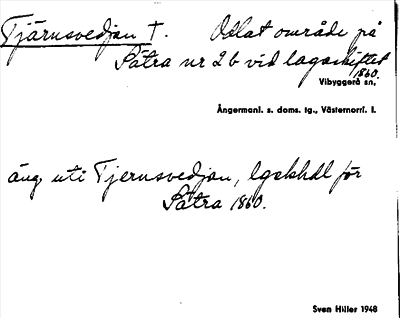 Tjärnsvedjan †. Odlat område på
Sätra nr 2b vid lagaskiftet
1860.
Vibyggerå sn,
Ångermanl. s. doms. tg., Västernorrl. l.
äng uti Tjernsvedjan, lgskhdl för
Sätra 1860.
Sven Hiller 1948